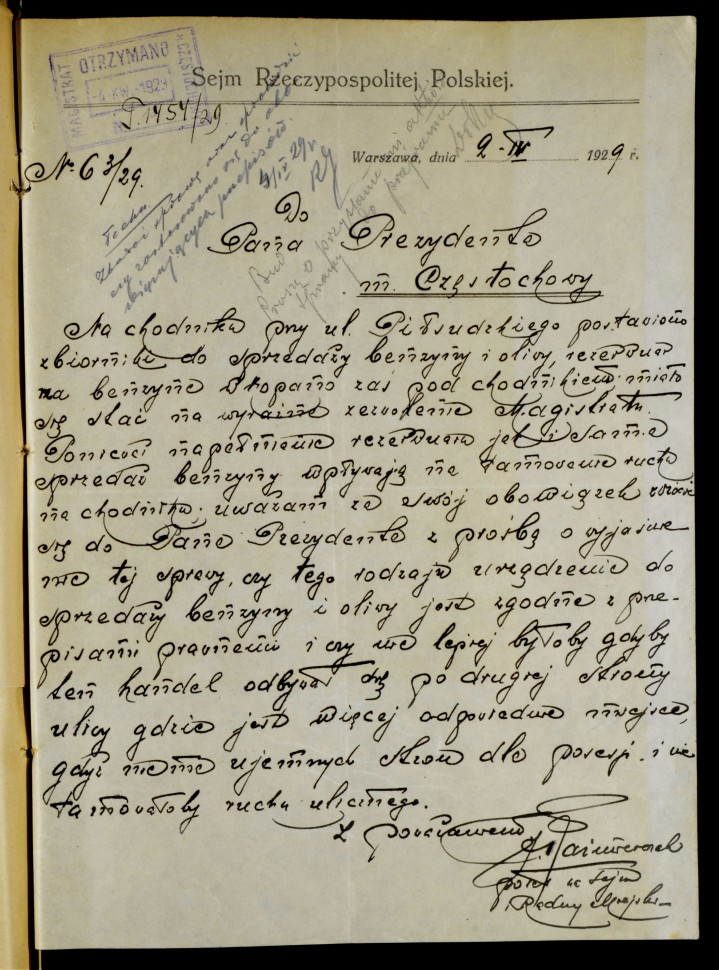 MAGISTRAT
OTRZYMANO
4. KW. 1929
Sejm Rzeczypospolitej Polskiej.
P. 1457/29
Warszawa, dnia 2 - IV 1929 r.
№ 63/29.
Techn.
4/IV 29 r.
Do
Pana Prezydenta
m. Częstochowy
Na chodniku przy ul. Piłsudzkiego postawiono
zbiorniki do sprzedaży benzyny i oliwy, rezerwuar
na benzynę wkopano zaś pod chodnikiem miało
się stać na wyraźne zezwolenie Magistratu.
Ponieważ napełnianie rezerwuaru jak i sama
sprzedaż benzyny wpływają na tamowanie ruchu
na chodniku, uważam za swój obowiązek zwrócić
się do Pana Prezydenta z prośbą o wyjaśnie
nie tej sprawy, czy tego rodzaju urządzenie do
sprzedaży benzyny i oliwy jest zgodne z prze-
pisami prawnemi i czy nie lepiej byłoby gdyby
ten handel odbywał się po drugiej strony
ulicy gdzie jest więcej odpowiednie miejsce,
gdyż niema ujemnych stron dla posesji i nie
tamowałoby ruchu ulicznego.
Z poważaniem
poseł na Sejm
i Radny Miejski